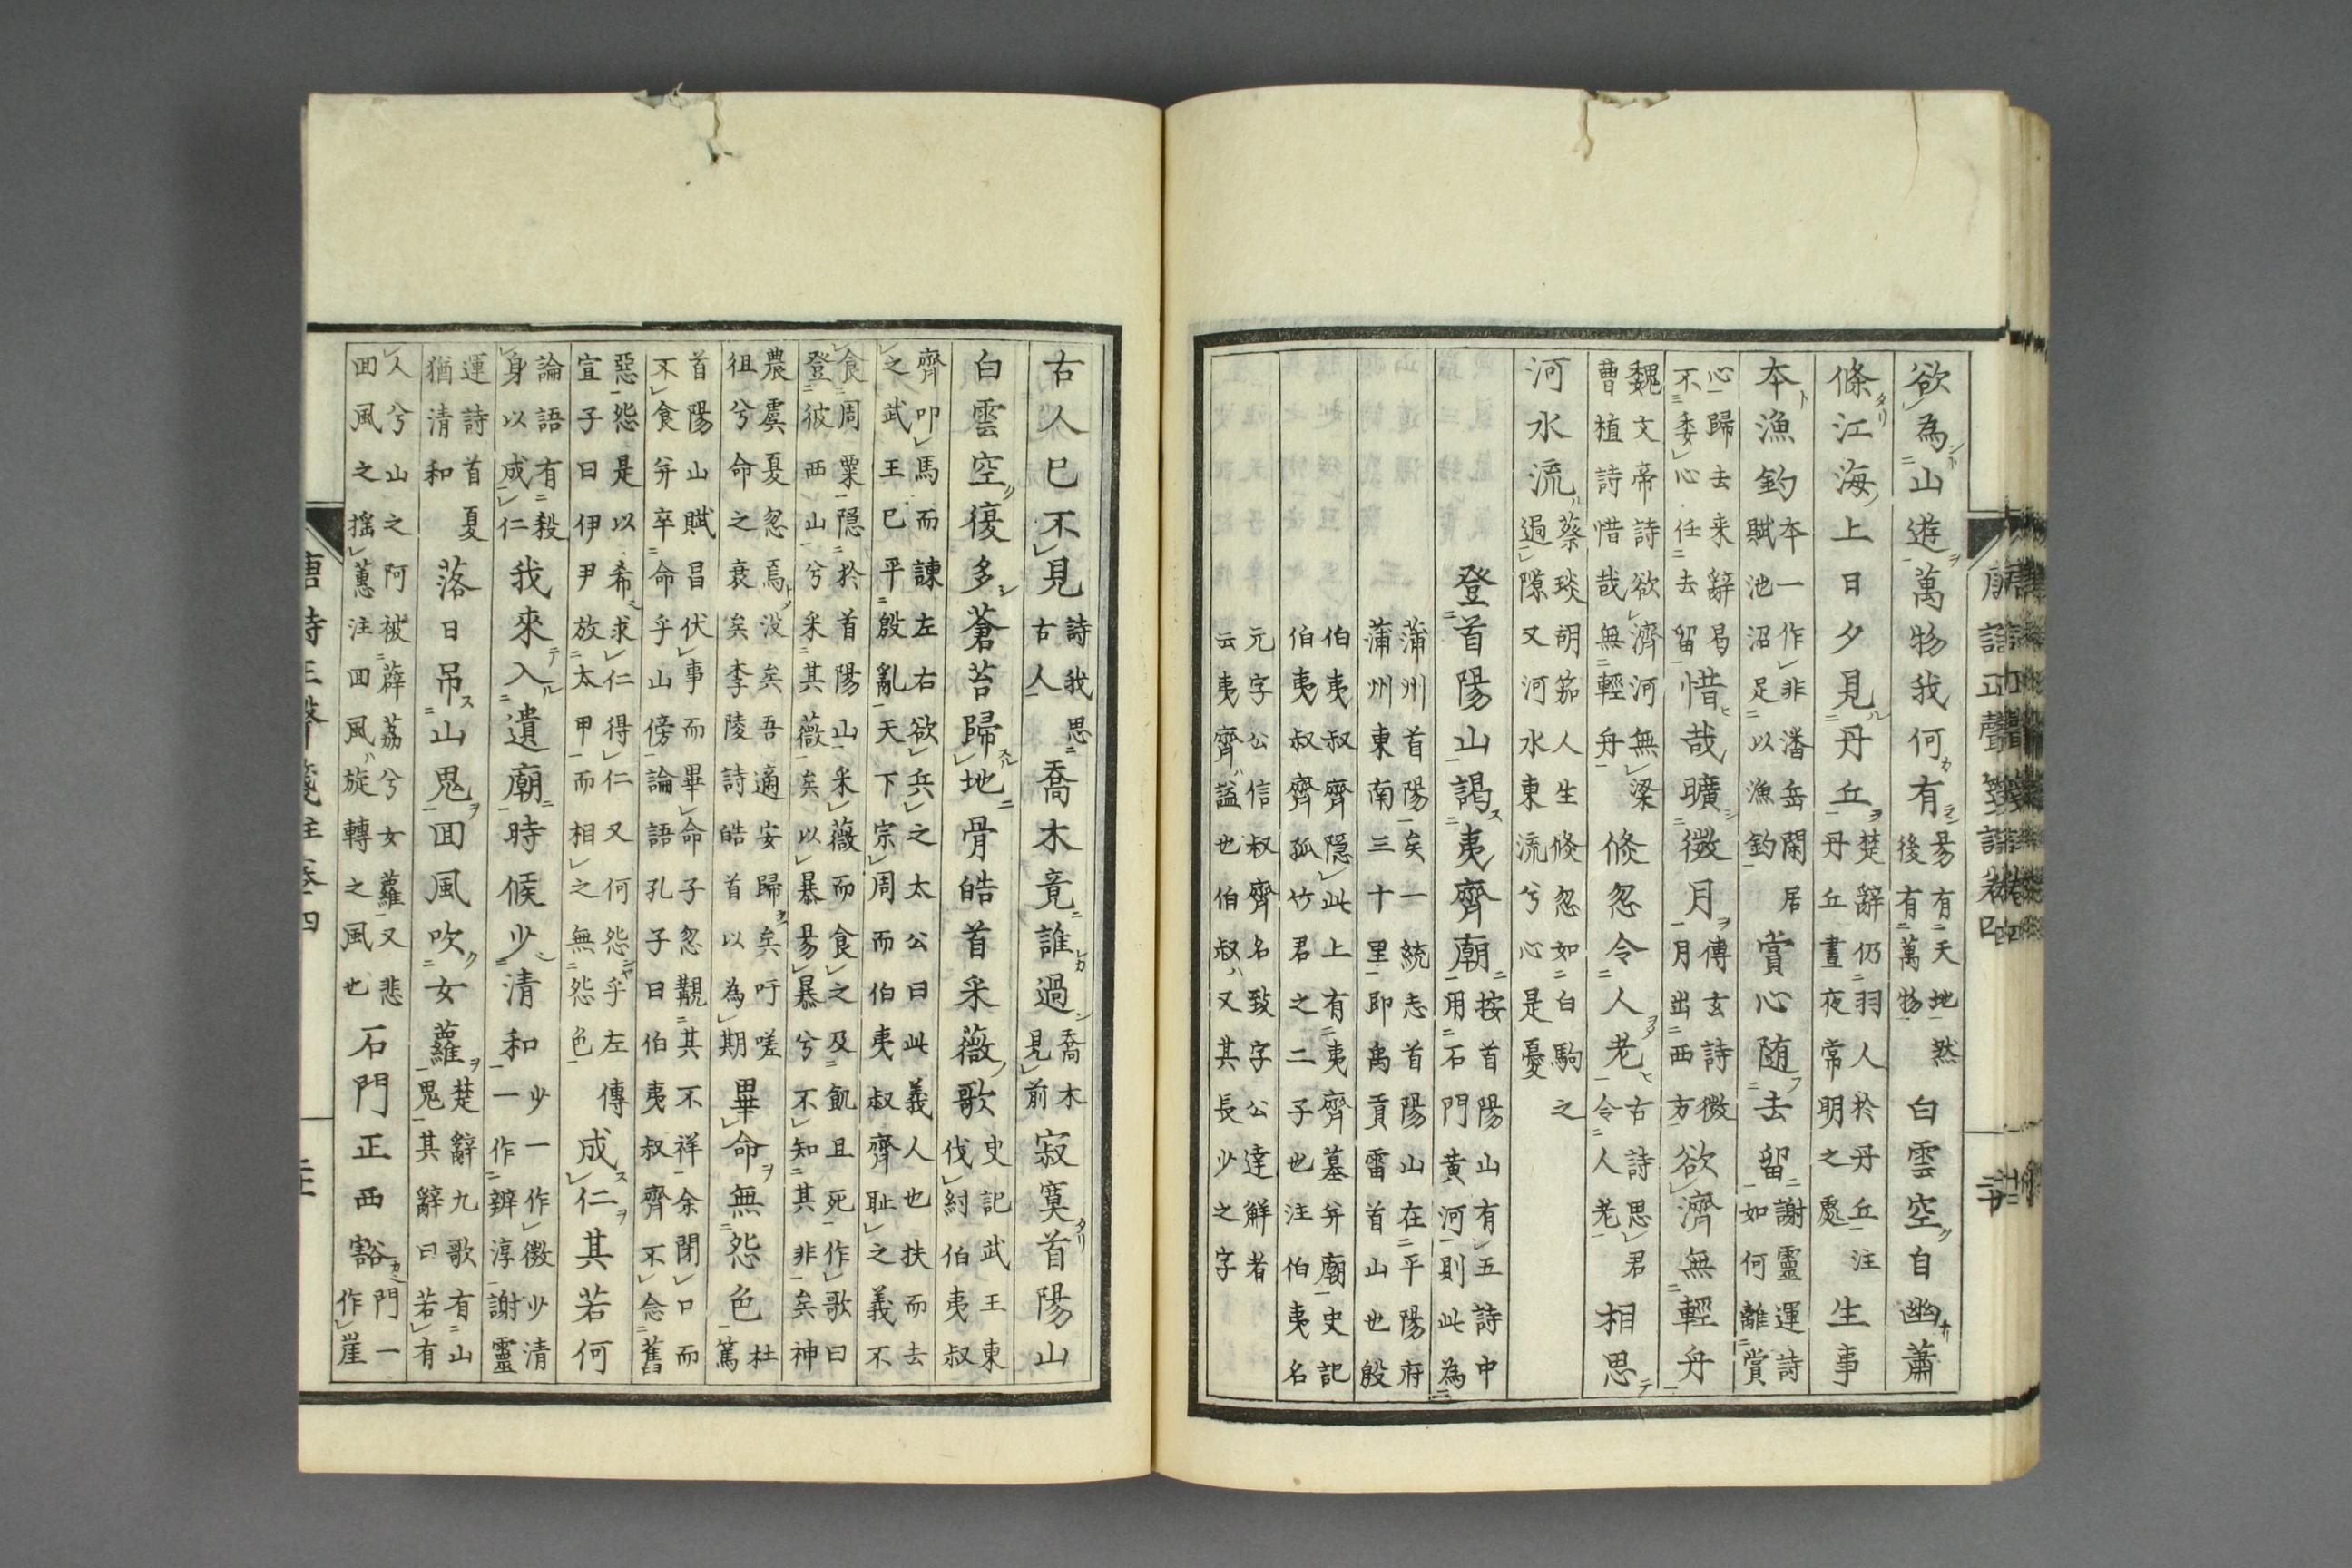 欲為山遊萬物我何有易有天地然後有萬物白雲空自幽蕭
條江海上日夕見丹丘楚辭仍羽人於丹丘注丹丘晝夜常明之處生事
本漁釣本一作非潘岳閑居賦池沼足以漁釣賞心随去留謝靈運詩如何離賞
心歸去来辭曷不委心任去留惜哉曠微月傳玄詩微月出西方欲濟無輕舟
魏文帝詩欲濟河無梁曹植詩惜哉無輕舟倏忽令人老古詩思君令人老相思
河水流蔡琰胡笳人生倏忽如白駒之過隙又河水東流兮心是憂
登首陽山謁夷齊廟按首陽山有五詩中用石門黄河則此為
蒲州首陽矣一統志首陽山在平陽府蒲州東南三十里即禹貢雷首山也殷
伯夷叔齊隠此上有夷齊墓并廟史記伯夷叔齊孤竹君之二子也注伯夷名
元字公信叔齊名致字公達解者云夷齊謚也伯叔又其長少之字
古人已不見詩我思古人喬木竟誰過喬木見前寂寞首陽山
白雲空復多蒼苔歸地骨皓首采薇歌史記武王東伐紂伯夷叔
齊叩馬而諫左右欲兵之太公曰此義人也扶而去之武王已平殷亂天下宗周而伯夷叔齊耻之義不
食周粟隠於首陽山采薇而食之及飢且死作歌曰登彼西山兮采其薇矣以暴易暴兮不知其非矣神
農虞夏忽焉没矣吾適安歸矣吁嗟徂兮命之衰矣李陵詩皓首以為期畢命無怨色杜篤
首陽山賦昌伏事而畢命子忽覯其不祥余閉口而不食并卒命乎山傍論語孔子曰伯夷叔齊不念舊
惡怨是以希求仁得仁又何怨乎左傳宣子曰伊尹放太甲而相之無怨色成仁其若何
論語有殺身以成仁我來入遺廟時候少清和少一作微少清一作辨淳謝靈
運詩首夏猶清和落日吊山鬼回風吹女蘿楚辭九歌有山鬼其辭曰若有
人兮山之阿被薜荔兮女蘿又悲回風之揺蕙注回風旋轉之風也石門正西豁門一作崖